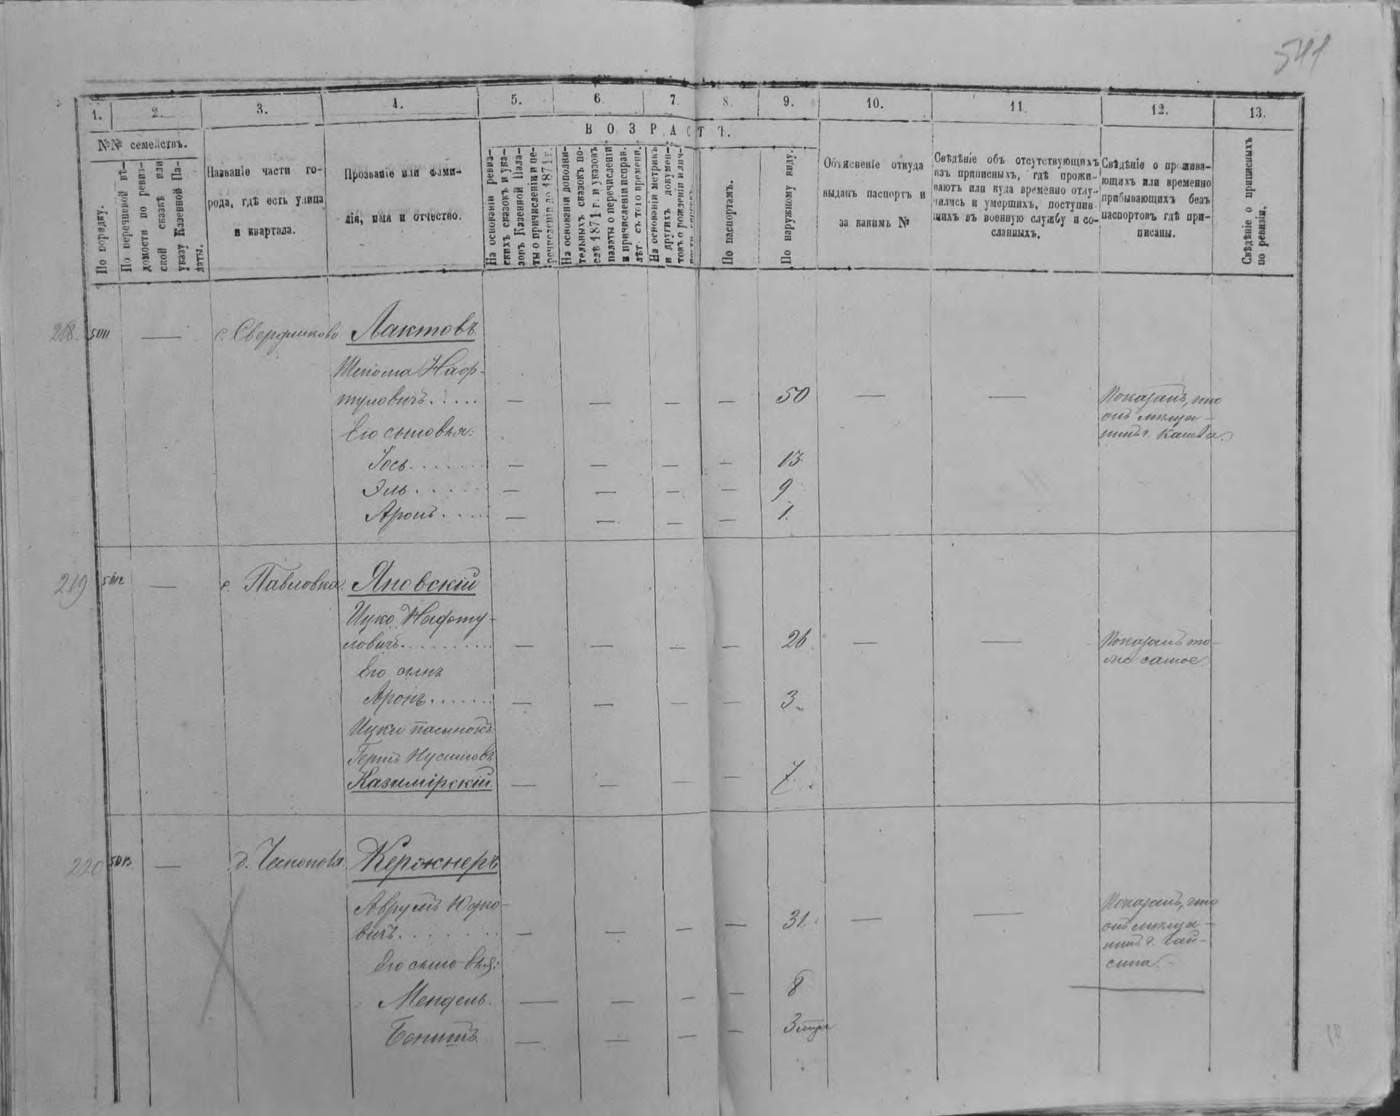 541
1. 2. 3. 4. 5. 6. 7. 8. 9. 10. 11. 12. 13.
№№ семействъ.
ВОЗРАСТЪ.
По порядку.
По перечневой вѣ-
домости по ревиз-
ской сказкѣ или
указу Казенной Па-
латы.
Названіе части го-
рода, гдѣ есть улица
и квартала.
Прозваніе или фами-
лія, имя и отчество.
На основаніи ревиз-
скихъ сказокъ и ука-
зовъ Казенной Пала-
ты о причисленіи и пе-
речисленіи до 1871 г.
На основаніи дополни-
тельныхъ сказокъ по-
слѣ 1871 г. и указовъ
палаты о перечисленіи
и причисленіи исправ.
лѣт. съ того времени.
На основаніи метрикъ
и другихъ докумен-
товъ о рожденіи и лич-
По паспортамъ.
По наружному виду.
Объясненіе откуда
выданъ паспортъ и
за какимъ №
Свѣдѣніе объ отсутствующихъ
изъ приписныхъ, гдѣ прожи-
ваютъ или куда временно отлу-
чились и умершихъ, поступив-
шихъ въ военную службу и со-
сланныхъ.
Свѣдѣніе о прожива-
ющихъ или временно
прибывающихъ безъ
паспортовъ гдѣ при-
писаны.
Свѣдѣніе о приписныхъ
по ревизіи.
218. 5011 — с. Лактовъ
Шлiома Наф-
туловичъ — — — — 50 — — Показалъ, что
онъ мѣща-
Его сыновья: нинъ г.
Іось — — — — 13
Эль — — — — 9
Аронъ — — — — 1.
219 5012 — с. Павловка. Яновскій
Ицко Нафту-
ловичъ — — — — 26 — — Показалъ то-
Его сынъ же самое.
Аронъ — — — — 3.
Ицки пасынокъ
Герш Нусимовъ
Казимірскій — — — — 7.
220 5013 — д. Кержнеръ
Аврумъ Юдко-
вичъ — — — — 31. — — Показалъ, что
онъ мѣща-
нинъ г. Гай-
Его сыновья: сина.
Мендель. — — — — 8
— — — — 3